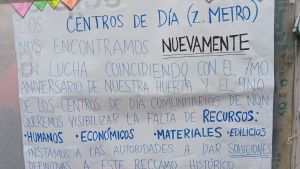 LOS CENTROS DE DÍA (Z. METRO)
NOS ENCONTRAMOS NUEVAMENTE
EN LUCHA COINCIDIENDO CON EL 7MO
ANIVERSARIO DE NUESTRA HUERTA Y EL
DE LOS CENTROS DE DÍA COMUNITARIOS DE NQN
QUEREMOS VISIBILIZAR LA FALTA DE RECURSOS:
•HUMANOS •ECONÓMICOS •MATERIALES •EDILICIOS
INSTAMOS A LAS AUTORIDADES A DAR SOLUCIONES
DEFINITIVAS A ESTE RECLAMO HISTÓRICO